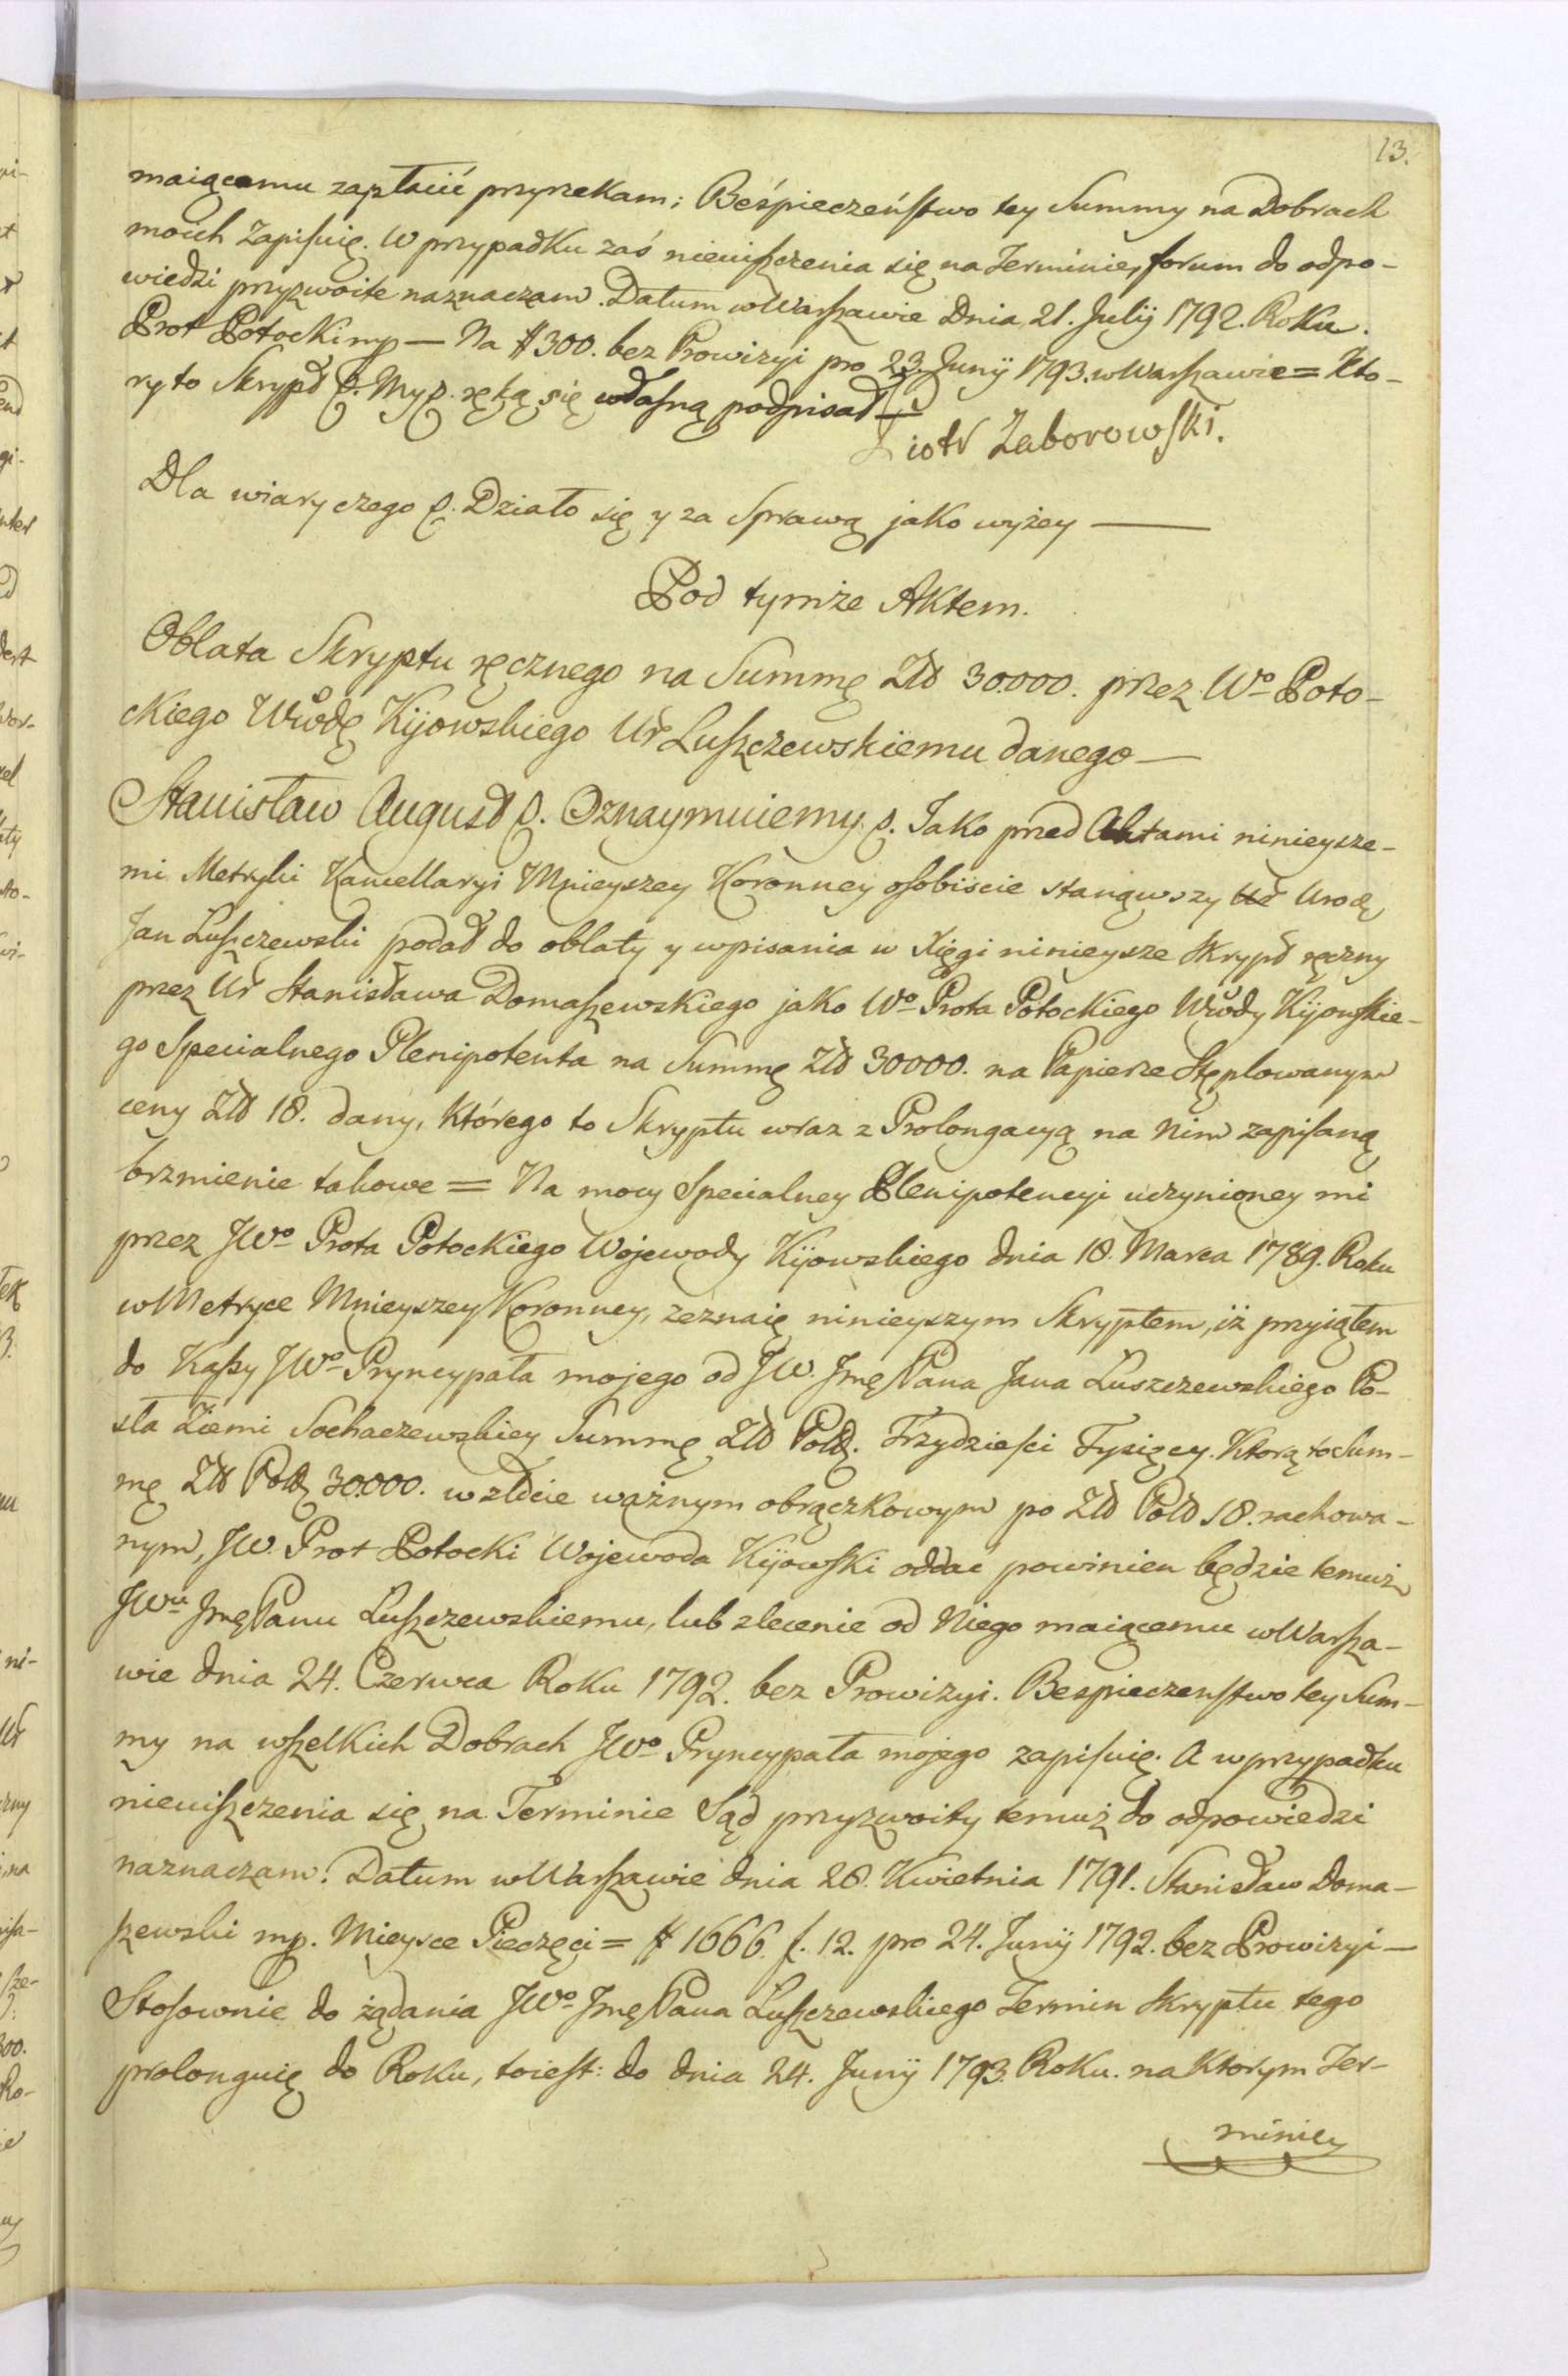 13.
maiącemu zapłacić przyrzekam; Beśpieczeństwo tey Summy na Dobrach
moich Zapisuię. W przypadku zaś nieuiszczenia się na Terminie, forum do odpo-
wiedzi przyzwoite naznaczam. Datum w Warszawie Dnia 21. Julij 1792. Roku.
Prot Potocki mp — Na # 300. bez Prowizyi pro 23. Junij 1793. w Warszawie = Kto-
ry to Skrypt p. My p. ręką się własną podpisał —
Piotr Zaborowski.
Dla wiary czego p. Działo się y za Sprawą jako wyżey —
Pod tymże Aktem.
Oblata Skryptu ręcznego na Summę Złł 30.000. przez Wo Poto-
ckiego Wwdę Kijowskiego Ur Luszczewskiemu danego —
Stanisław August p. Oznaymuiemy p. Jako przed Aktami ninieysze-
mi Metryki Kancellaryi Mnieyszey Koronney osobiscie stanąwszy Ur Urodz
Jan Luszczewski podał do oblaty y wpisania w Xięgi ninieysze Skrypt ręczny
przez Ur Stanisława Domaszewskiego jako Wo Prota Potockiego Wwdy Kijowskie-
go Specialnego Plenipotenta na Summę Złł 30000. na Papierze Stęplowanym
ceny Złł 18. dany, którego to Skryptu wraz z Prolongacyą na Nim zapisaną
brzmienie takowe = Na mocy Specialney Plenipotencyi uczynioney mi
przez JWo Prota Potockiego Wojewody Kijowskiego dnia 18. Marca 1789. Roku
w Metryce Mnieyszey Koronney, zeznaię ninieyszym Skryptem, iż przyiąłem
do Kassy JWo Pryncypała mojego od JW. Jmę Pana Jana Luszczewskiego Po-
sła Ziemi Sochaczewskiey Summę Złł Polł. Trzydzieści Tysięcy. Którą to Sum-
mę Złł Polł 30.000. w złocie ważnym obrączkowym po Złł Poll 18. rachowa-
nym, JW. Prot Potocki Wojewoda Kijowski oddac powinien będzie temuż
JWu Jmę Panu Luszczewskiemu, lub zlecenie od Niego maiącemu w Warsza-
wie dnia 24. Czerwca Roku 1792. bez Prowizyi. Bespieczenstwo tey Sum-
my na wszelkich Dobrach JWo Pryncypała mojego zapisuię. A w przypadku
nieuiszczenia się na Terminie Sąd przyzwoity temuż do odpowiedzi
naznaczam. Datum w Warszawie dnia 28. Kwietnia 1791. Stanisław Doma-
szewski mp. Mieysce Pieczęci = # 1666. f. 12. pro 24. Junij 1792. bez Prowizyi —
Stosownie do żądania JWo Jmę Pana Luszczewskiego Termin Skryptu tego
prolonguię do Roku, toiest: do dnia 24. Junij 1793. Roku. na Ktorym Ter-
miniey